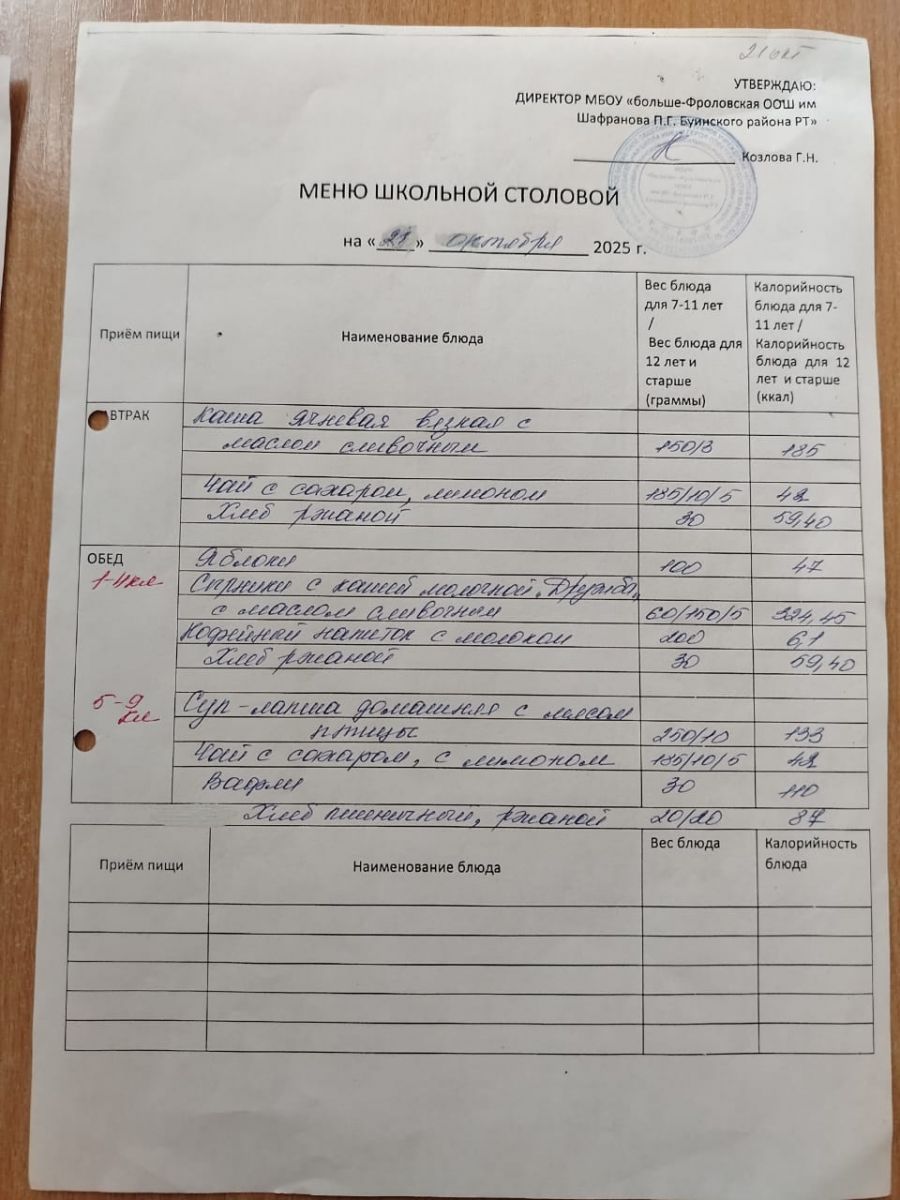 21 окт
УТВЕРЖДАЮ:
ДИРЕКТОР МБОУ «больше-Фроловская ООШ им
Шафранова П.Г. Буинского района РТ»
Козлова Г.Н.
МЕНЮ ШКОЛЬНОЙ СТОЛОВОЙ
на « » октября 2025 г.
Приём пищи
Наименование блюда
Вес блюда
для 7-11 лет
/
Вес блюда для
12 лет и
старше
(граммы)
Калорийность
блюда для 7-
11 лет /
Калорийность
блюда для 12
лет и старше
(ккал)
АВТРАК
Каша ячневая вязкая с
маслом сливочным 150/3 185
Чай с сахаром, лимоном 185/10/5 42
Хлеб ржаной 30 59,40
ОБЕД
Яблоки 100 47
1-4кл
Сырники с кашей молочной „Дружба„
с маслом сливочным 60/150/5 324,45
Кофейный напиток с молоком 200 6,1
Хлеб ржаной 30 59,40
5-9
кл
Суп-лапша домашняя с мясом
птицы 250/10 133
Чай с сахаром, с лимоном 185/10/5 42
Вафли 30 110
Хлеб пшеничный, ржаной 20/20 87
Приём пищи
Наименование блюда
Вес блюда
Калорийность
блюда